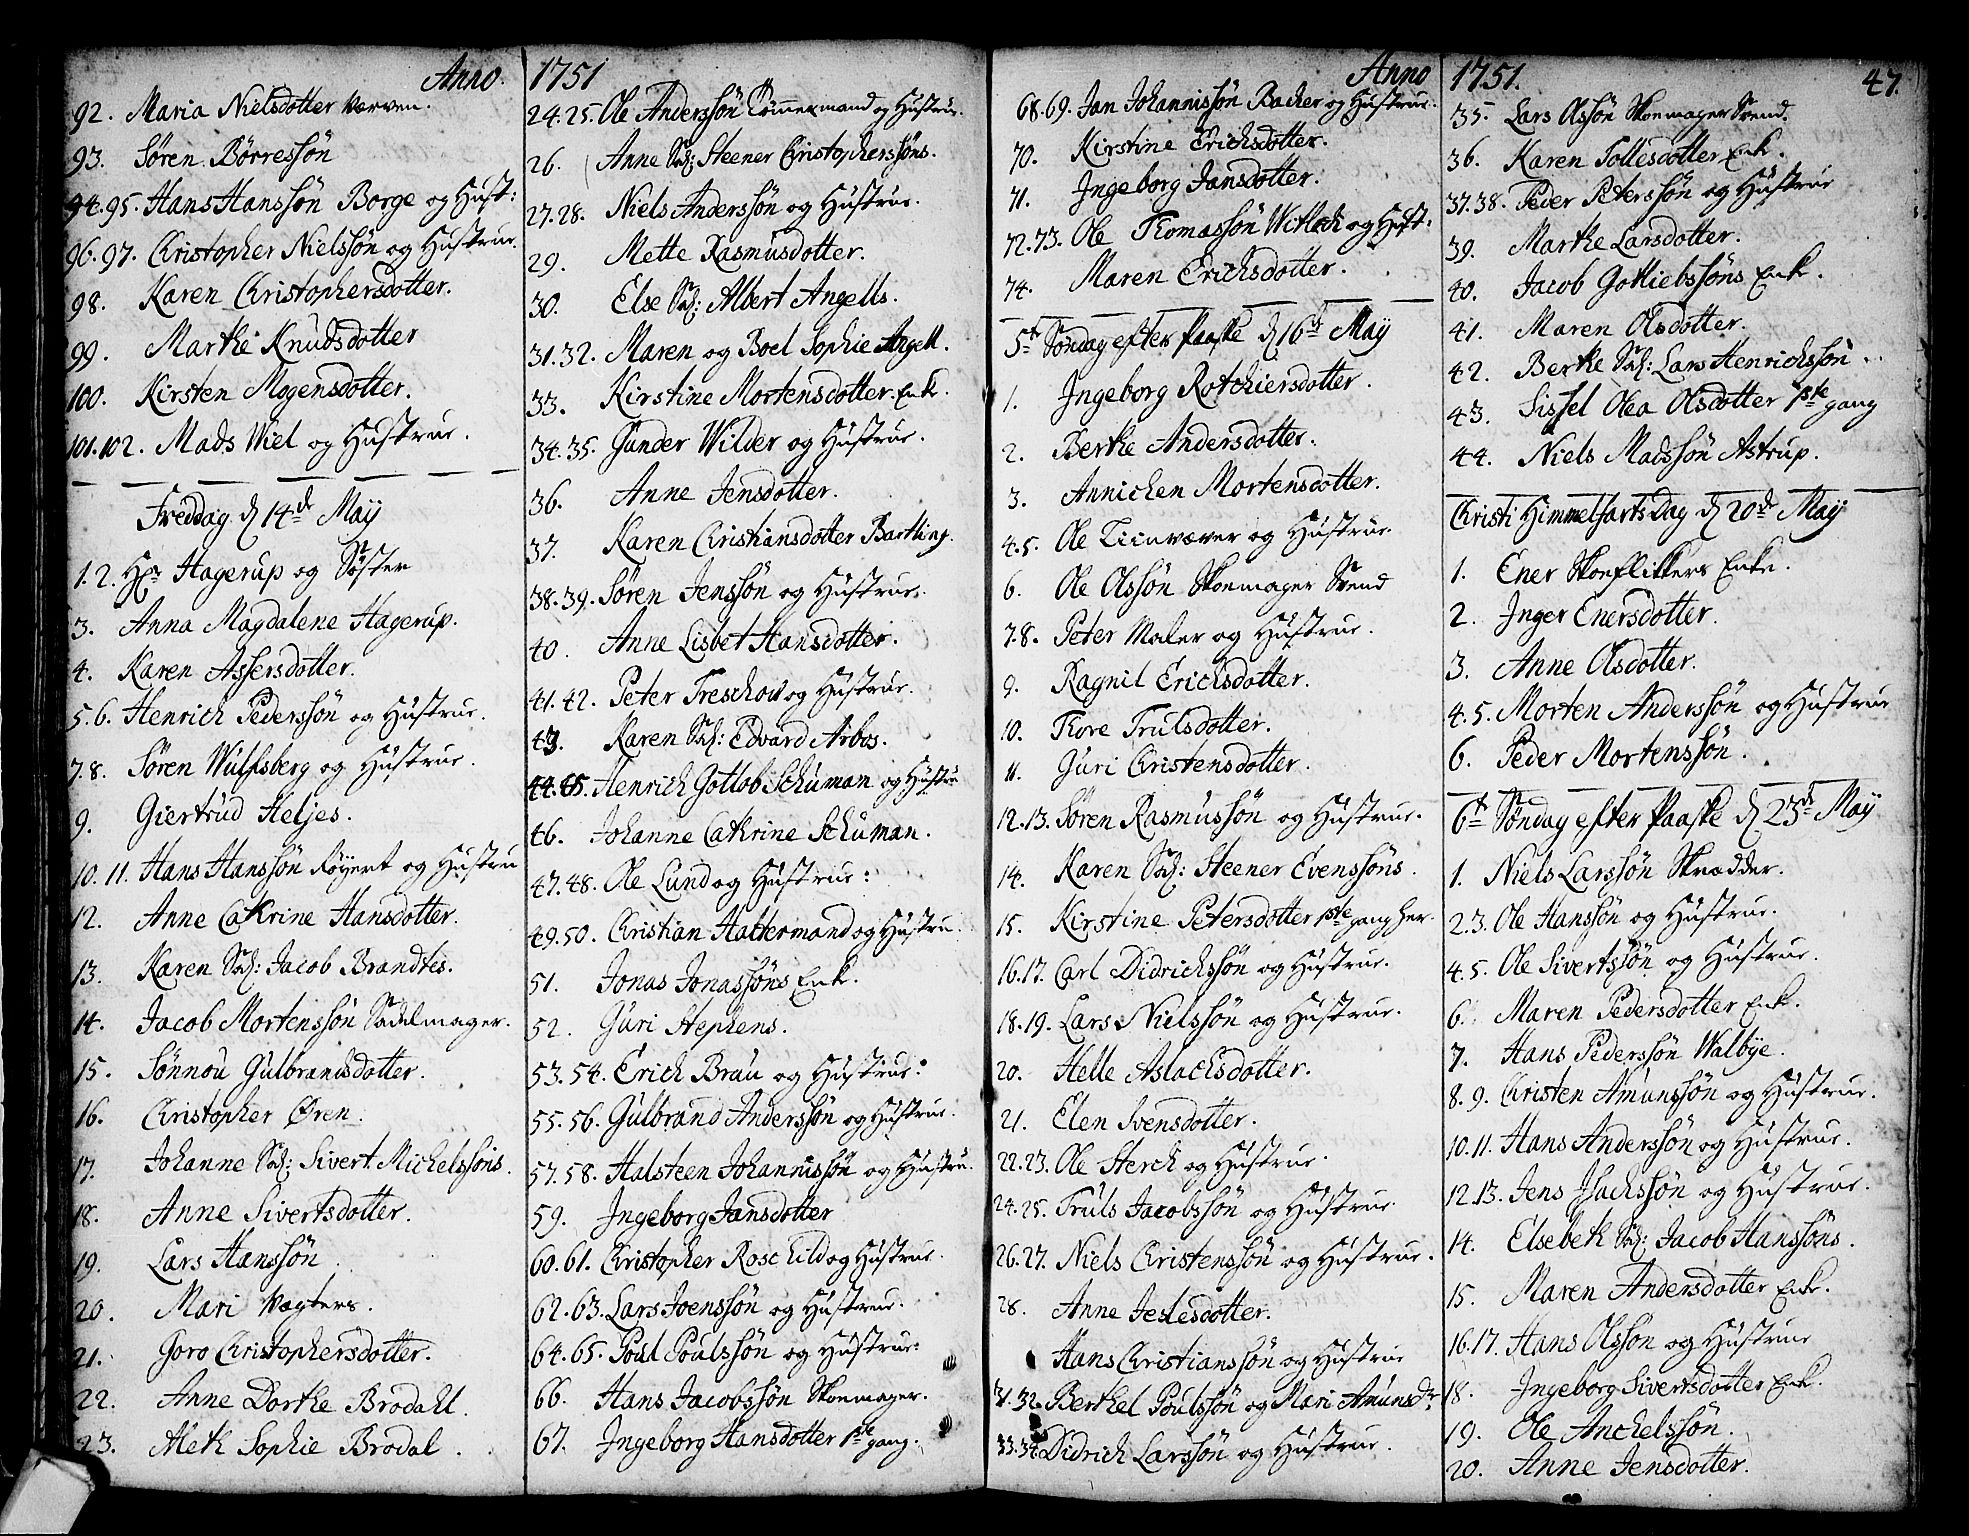 Anno
92. Maria Nielsdotter Verven.
93. Søren Børressøn
94.95. Hans Hanssøn Borge og Hust:
96.97. Christopher Nielssøn og Hustrue.
98. Karen Christophersdotter.
99. Marthe Knudsdotter
100. Kirsten Mogensdotter.
101.102. Mads Wiel og Hustrue.
Freddag d 14de May
1.2. Hr Hagerup og Søster
3. Anna Magdalene Hagerup.
4. Karen Assersdotter.
5.6. Henrich Pederssøn og Hustrue.
7.8. Søren Wulfsberg og Hustrue.
9. Giertrud Heljes.
10.11. Hans Hanssøn Røyert og Hustru
12. Anne Cathrine Hansdotter.
13. Karen Sal: Jacob Brandtes.
14. Jacob Mortenssøn Sadelmager.
15. Sønnou Gulbrandsdotter.
16. Christopher Øren.
17. Johanne Sal: Sivert Michelssøns.
18. Anne Sivertsdotter.
19. Lars Hanssøn
20. Mari Vægters.
21. Goro Christophersdotter.
22. Anne Dorthe Brodahl.
23. Aleth Sophie Brodal.
1751
24.25. Ole Anderssøn Tømmermand og Hustrue.
26. Anne Sal: Steener Christopherssøns.
27.28. Niels Anderssøn og Hustrue.
29. Mette Rasmusdotter.
30. Else Sal: Albert Angells.
31.32. Maren og Boel Sophie Angell.
33. Kirstine Mortensdotter. Enk.
34.35. Gunder Wilder og Hustrue.
36. Anne Jensdotter.
37. Karen Christiansdotter Bartling.
38.39. Søren Jenssøn og Hustrue.
40. Anne Lisbet Hansdotter.
41.42. Peter Treschow og Hustrue.
43. Karen Sal: Edvard Arbos.
44.45. Henrich Gottlob Schuman og Hustru
46. Johanne Cathrine Schuman.
47.48. Ole Lund og Hustrue:
49.50. Christian Haltermand og Hustru.
51. Jonas Jonassøns Enk.
52. Guri Stephens.
53.54. Erich Brau og Hustrue:
55.56. Gulbrand Anderssøn og Hustrue.
57.58. Halsteen Johannissøn og Hustru.
59. Ingeborg Jansdotter
60.61. Christopher Roschild og Hustrue.
62.63. Lars Joenssøn og Hustrue.
64.65. Poul Poulssøn og Hustrue:
66. Hans Jacobssøn Skoemager.
67. Ingeborg Hansdotter 1ste gang.
Anno
68.69. Jan Johannissøn Backer og Hustrue.
70. Kirstine Erichsdotter.
71. Ingeborg Jansdotter.
72.73. Ole Thomassøn Witloch og Hust:
74. Maren Erichsdotter.
5te Søndag efter Paaske d 16de May
1. Ingeborg Rotchiersdotter.
2. Berthe Andersdotter.
3. Annichen Mortensdotter.
4.5. Ole Liinvæver og Hustrue
6. Ole Olssøn Skoemager Svend
7.8. Peter Maler og Hustrue.
9. Ragnil Erichsdotter.
10. Thore Trulsdotter.
11. Guri Christensdotter.
12.13. Søren Rasmussøn og Hustrue.
14. Karen Sal: Steener Evenssøns.
15. Kirstine Petersdotter 1ste gang her.
16.17. Carl Didrichssøn og Hustrue.
18.19. Lars Nielssøn og Hustrue.
20. Helle Aslachsdotter.
21. Elen Svensdotter.
22.23. Ole Sterch og Hustrue.
24.25. Truls Jacobssøn og Hustrue.
26.27. Niels Christenssøn og Hustrue.
28. Anne Jeslesdotter.
Hans Christianssøn og Hustrue
31.32. Berthel Poulssøn og Mari Amunsdr
33.34. Didrich Larssøn og Hustrue.
1751. 47.
35. Lars Olssøn Skoemager Svend.
36. Karen Tollesdotter Enk.
37.38. Peder Peterssøn og Hustrue
39. Marthe Larsdotter.
40. Jacob Gotliebssøns Enk.
41. Maren Olsdotter.
42. Berthe Sal: Lars Henrichssøn
43. Sissel Olea Olsdotter 1ste gang
44. Niels Madssøn Astrup.
Christi Himmelfarts Dag d 20de May
1. Ener Skoeflikkers Enke.
2. Inger Enersdotter.
3. Anne Olsdotter.
4.5. Morten Anderssøn og Hustrue
6. Peder Mortenssøn.
6te Søndag efter Paaske d 23de May
1. Niels Larssøn Skrædder.
2.3. Ole Hanssøn og Hustrue.
4.5. Ole Sivertssøn og Hustrue.
6. Maren Pedersdotter Enk.
7. Hans Pederssøn Walbye.
8.9. Christen Amunssøn og Hustrue.
10.11. Hans Anderssøn og Hustrue.
12.13. Jens Isachssøn og Hustrue.
14. Elsebeth Sal: Jacob Hanssøns.
15. Maren Andersdotter Enk.
16.17. Hans Olssøn og Hustrue
18. Ingeborg Sivertsdotter Enk.
19. Ole Anchelssøn.
20. Anne Jensdotter.